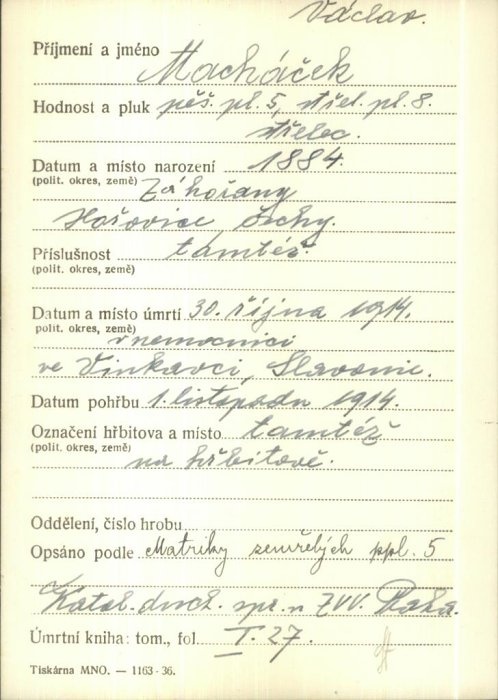 Václav.
Příjmení a jméno Macháček
Hodnost a pluk pěš. pl. 5, střel. pl. 8.
střelec.
Datum a místo narození 1884.
(polit. okres, země) Záhořany
Hořovice, Čechy.
Příslušnost tamtéž.
(polit. okres, země)
Datum a místo úmrtí 30. října 1914.
polit. okres, země) v nemocnici
ve Vinkovci, Slavonie.
Datum pohřbu 1. listopadu 1914.
Označení hřbitova a místo tamtéž
(polit. okres, země)
na hřbitově.
Oddělení, číslo hrobu
Opsáno podle Matriky zemřelých ppl. 5
Katol. duch. spr. u ZVV. Praha.
Úmrtní kniha: tom., fol. I. 27.
Tiskárna MNO. — 1163-36.